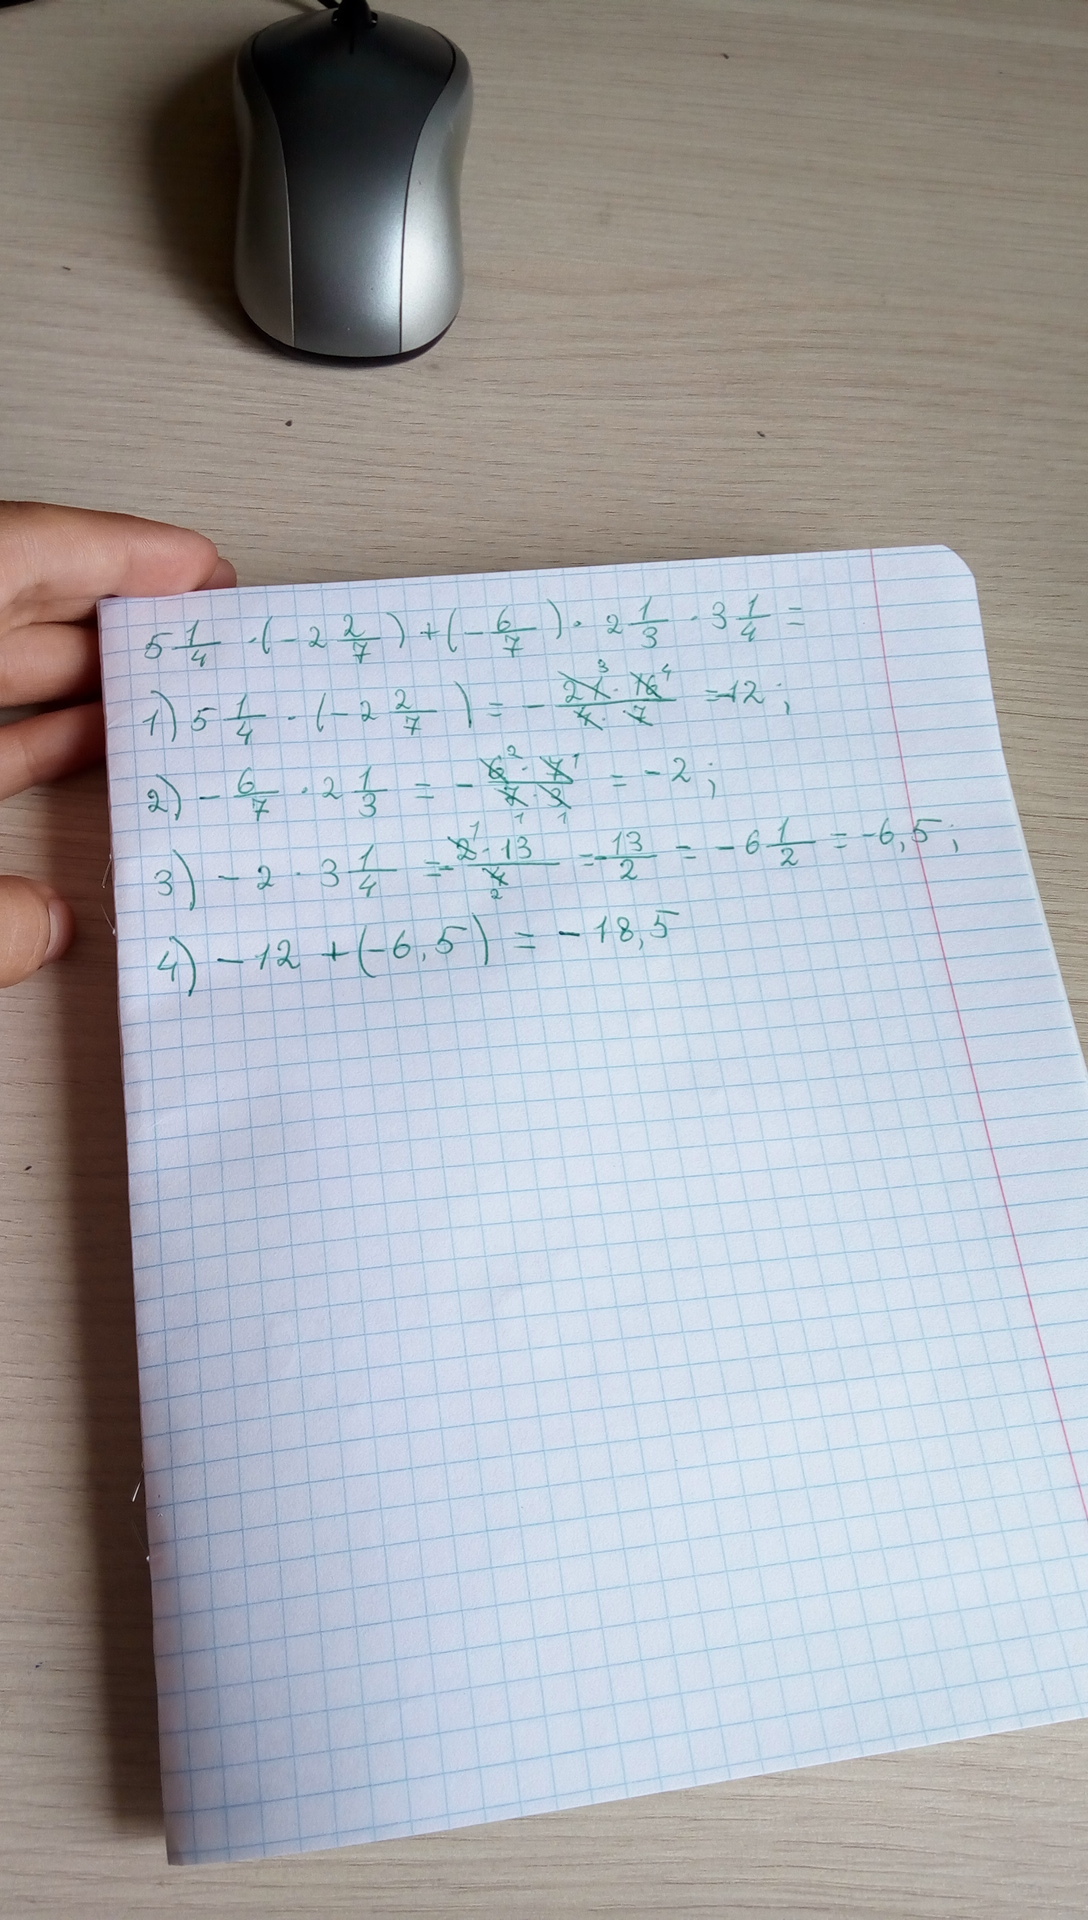 5 1/4 · (-2 2/7) + (-6/7) · 2 1/3 · 3 1/4 =
1) 5 1/4 · (-2 2/7) = - 21 3 · 16 4 / 4 · 7 = -12;
2) - 6/7 · 2 1/3 = - 6 2 · 7 1 / 7 1 · 3 1 = -2;
3) -2 · 3 1/4 = - 2 1 · 13 / 4 2 = - 13/2 = -6 1/2 = -6,5;
4) -12 + (-6,5) = -18,5